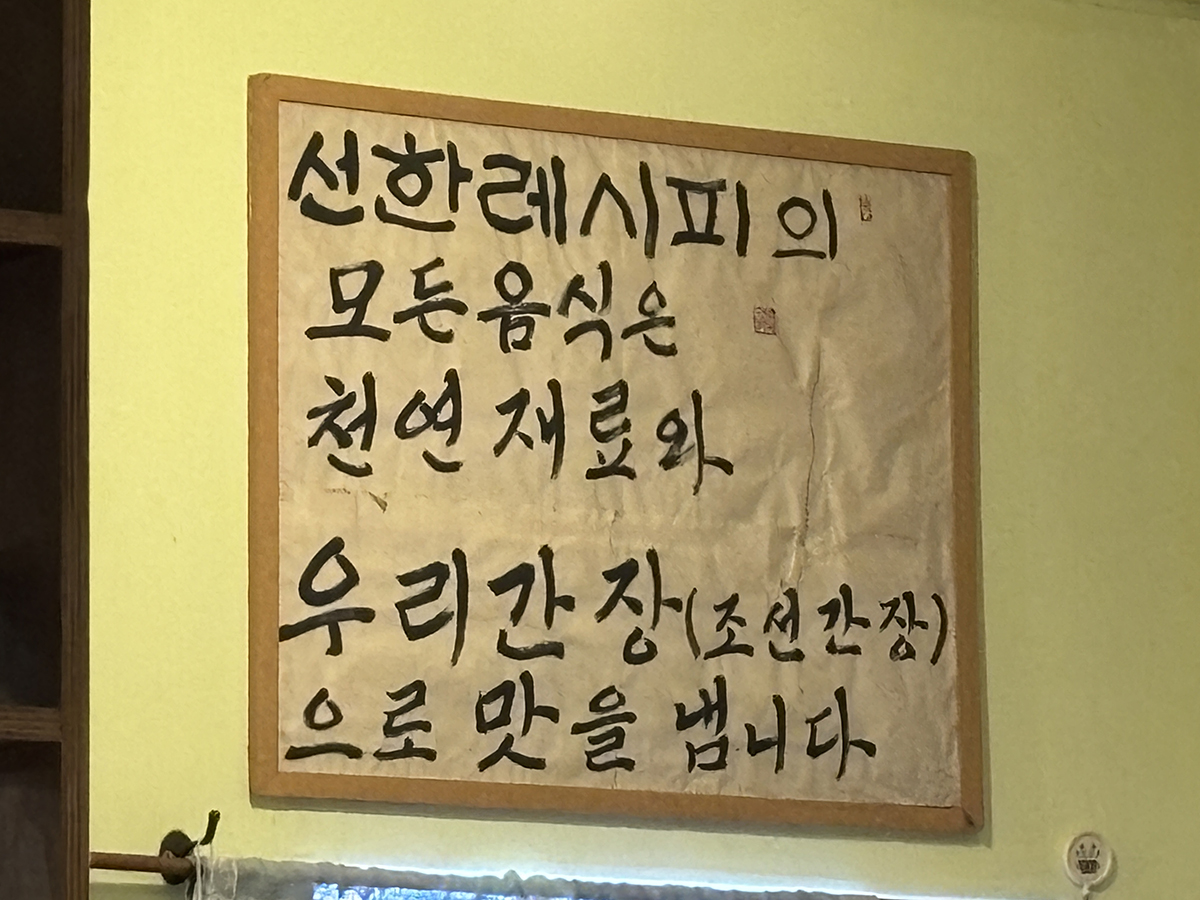 선한레시피의
모든음식은
천연재료와
우리간장(조선간장)
으로 맛을 냅니다